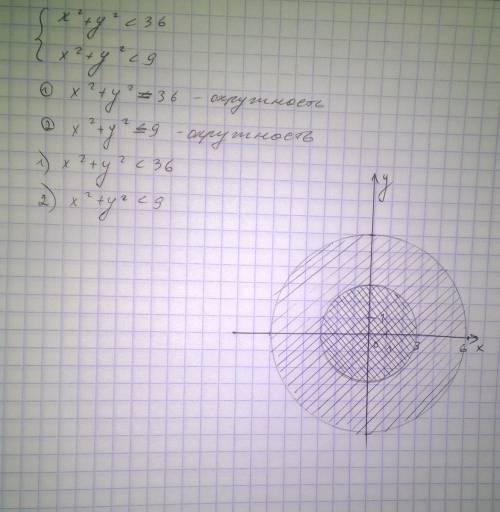 { x² + y² < 36
{ x² + y² < 9
① x² + y² = 36 - окружность
② x² + y² = 9 - окружность
1) x² + y² < 36
2) x² + y² < 9
y
1
0 1 3 6 x